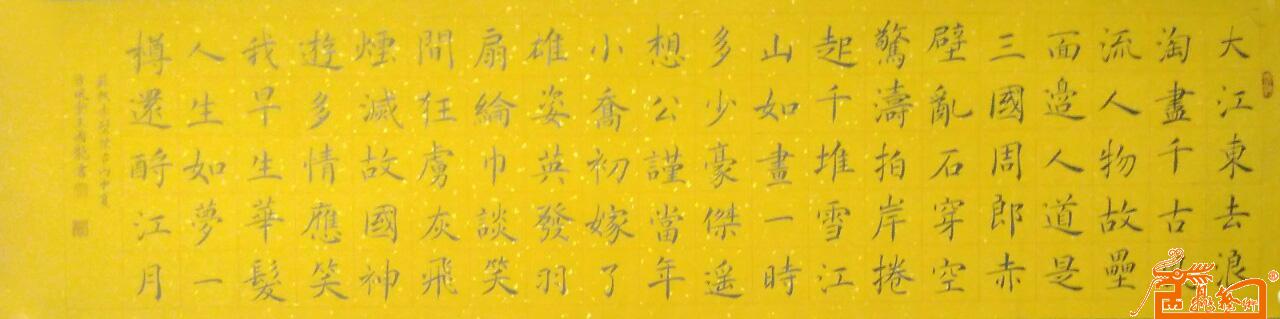 大江東去浪
淘盡千古
流人物故壘
面邊人道是
三國周郎赤
壁亂石穿空
驚濤拍岸捲
起千堆雪江
山如畫一時
多少豪傑遥
想公謹當年
小喬初嫁了
雄姿英發羽
扇綸巾談笑
間狂虜灰飛
煙滅故國神
遊多情應笑
我早生華髮
人生如夢一
樽還酹江月
蘇軾赤壁懷古丙申夏